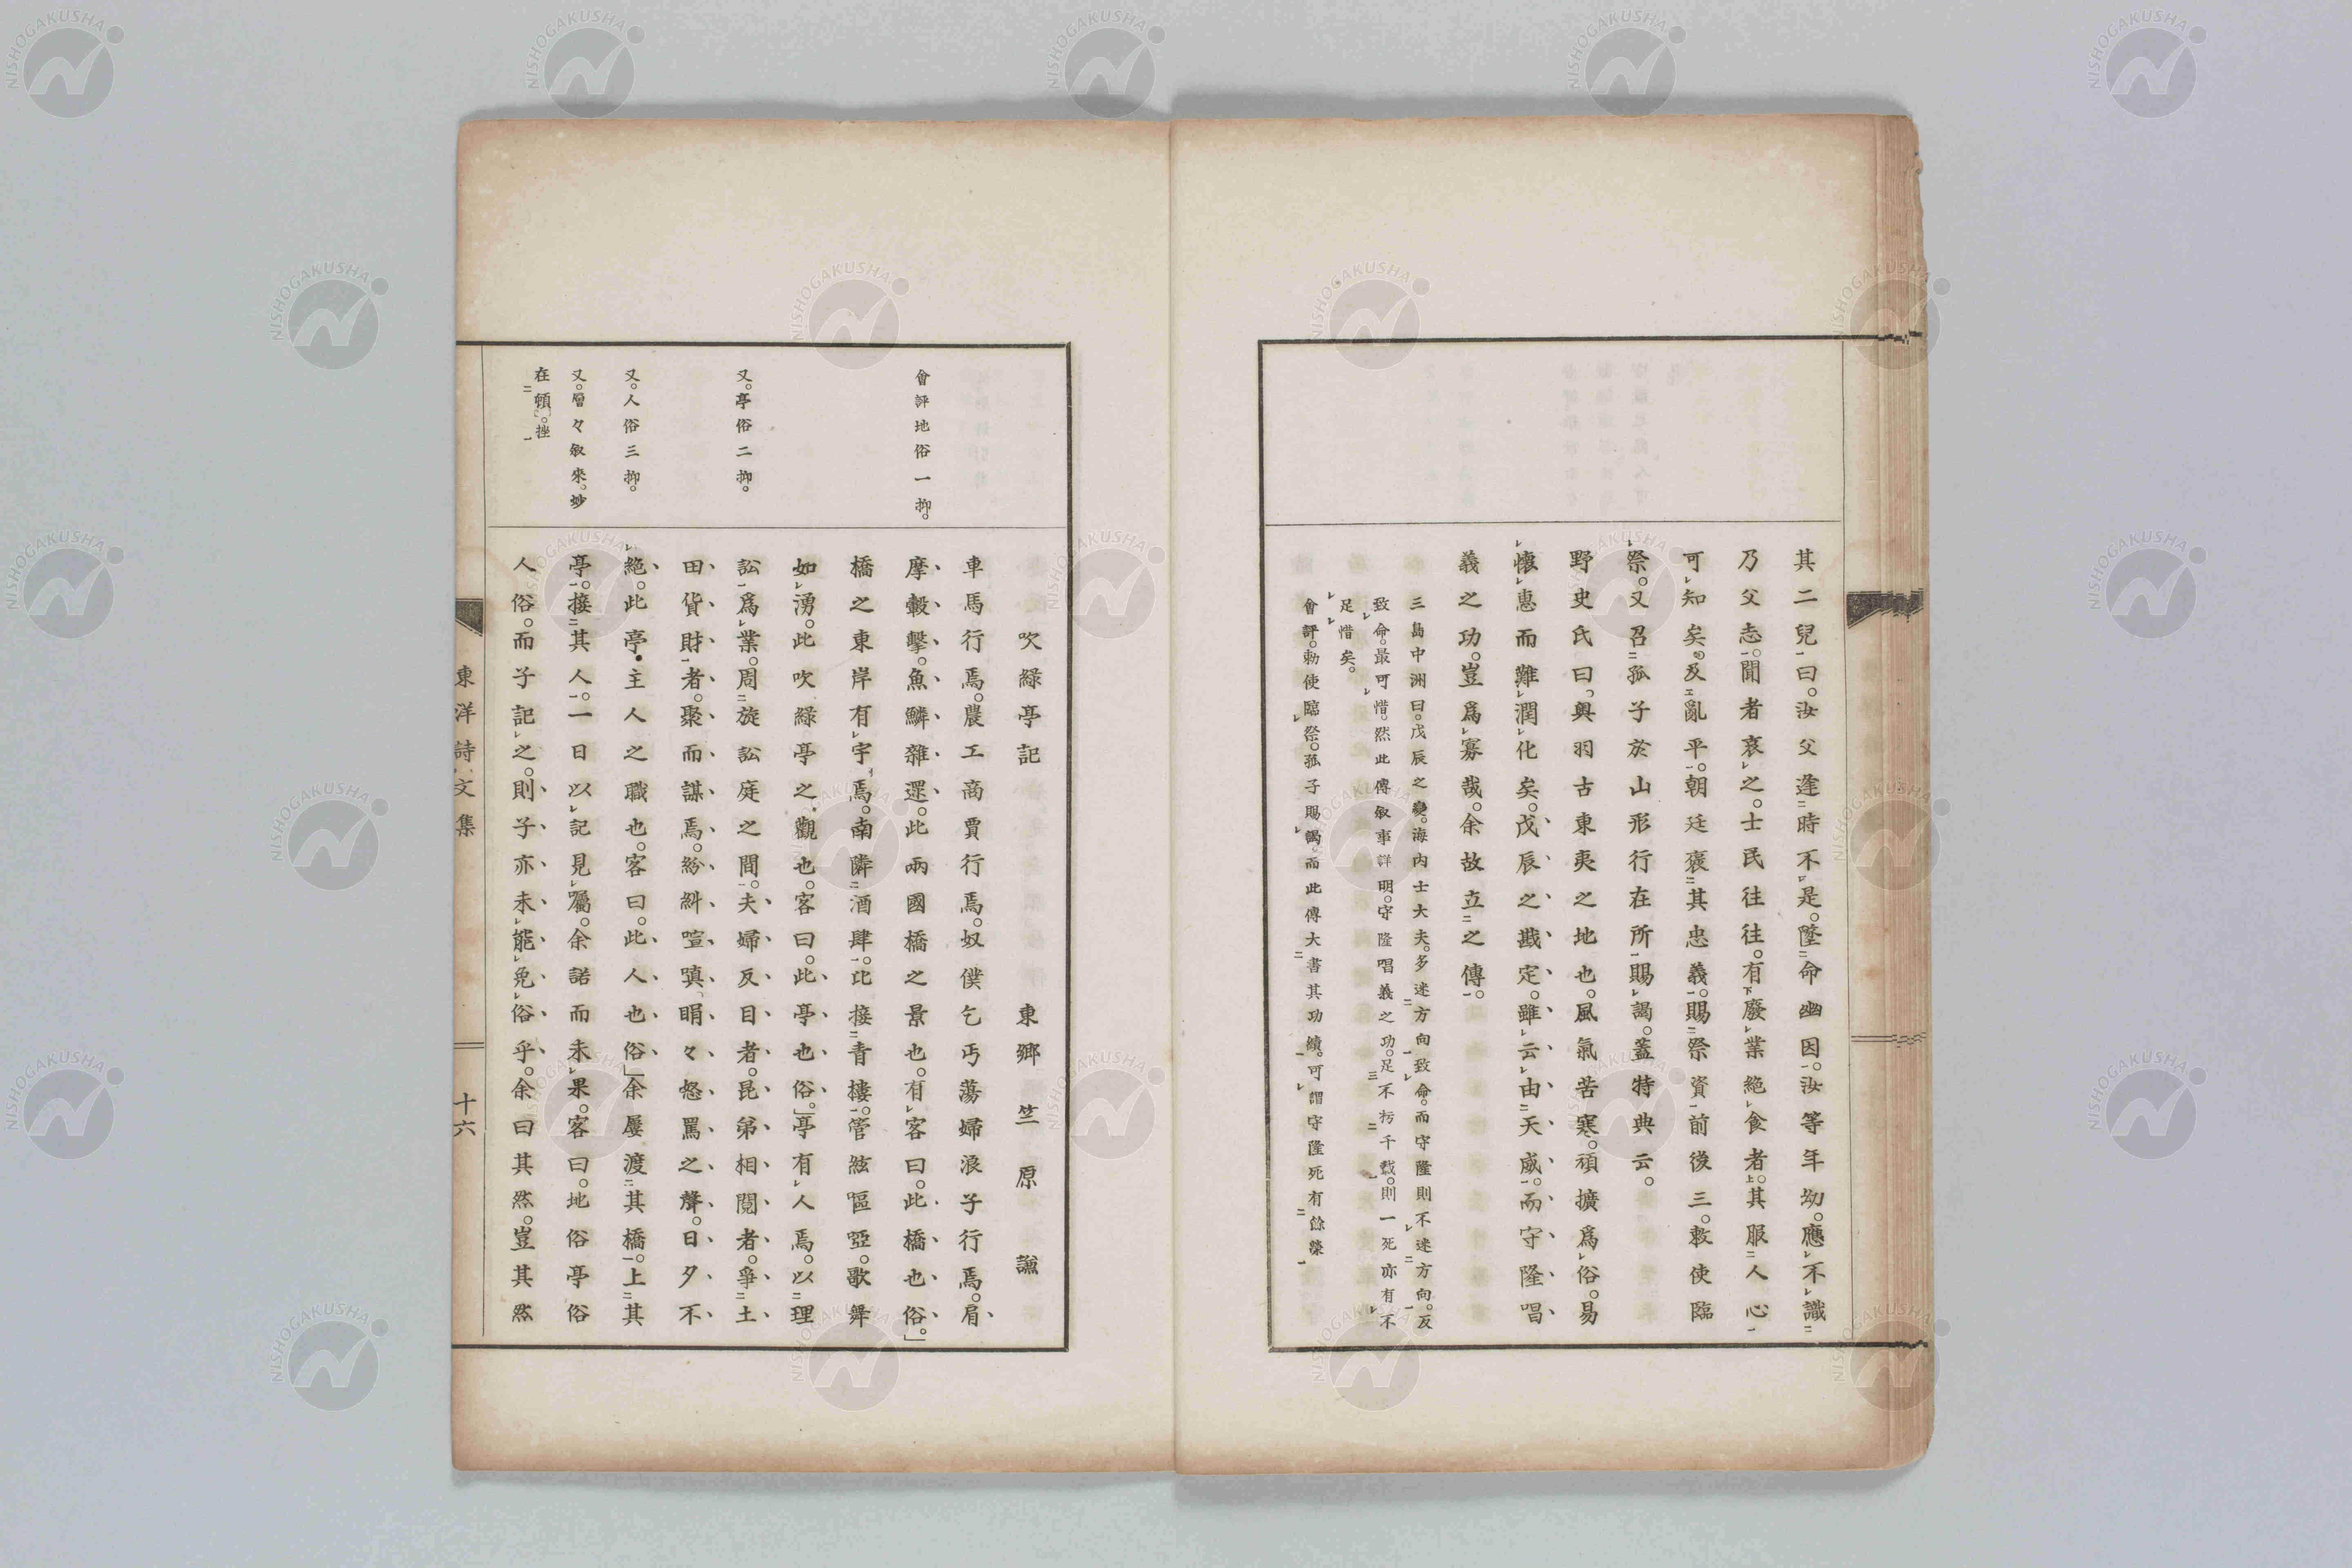 其二兒曰。汝父逢時不是。隆命幽因。汝等年幼。應不識
乃父志。聞者哀之。士民往往。有廢業絶食者。其服人心
可知矣。及亂平。朝廷褒其忠義。賜祭資前後三。敕使臨
祭。又召孤子於山形行在所賜謁。蓋特典云。
野史氏曰。奥羽古東夷之地也。風氣苦寒。頑擴爲俗。易
懷惠而難潤化矣。戊辰之戡定。雖云由天威。而守隆唱
義之功。豈爲寡哉。余故立之傳。
三島中洲曰。戊辰之變。海内士大夫。多迷方向致命。而守隆則不迷方向。反
致命。最可惜。然此傳敘事詳明。守隆唱義之功。足不朽千載。則一死亦有不
足惜矣。
會評。勅使臨祭。孤子賜謁。而此傳大書其功績。可謂守隆死有餘榮
吹緑亭記 東郷竺原 謙
車馬行焉。農工商賈行焉。奴僕乞丐蕩婦浪子行焉。肩
摩轂擊。魚鱗雜遝。此兩國橋之景也。有客曰。此橋也俗。」
橋之東岸有宇焉。南隣酒肆。比接青樓。管絃嘔啞。歌舞
如湧。此吹緑亭之觀也。客曰。此亭也俗。」亭有人焉。以理
訟爲業。周旋訟庭之間。夫婦反目者。昆弟相鬩者。爭土
田貨財者。聚而謀焉。紛糾喧嗔。睊々怒罵之聲。日夕不
絶。此亭主人之職也。客曰。此人也俗」余屢渡其橋。上其
亭。接其人。一日以記見屬。余諾而未果。客曰。地俗亭俗
人俗。而子記之。則子亦未能免俗乎。余曰其然。豈其然
會評地俗一抑。
又。亭俗二抑。
又。人俗三抑。
又。層々敘來。妙
在頓」。挫
東洋詩文集
十六